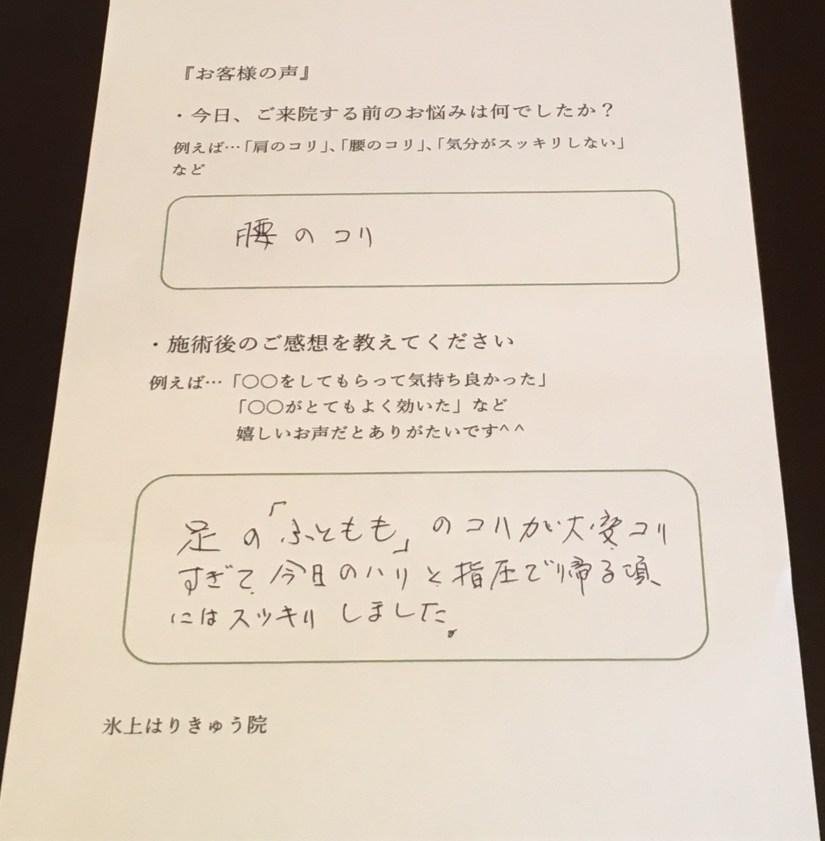 『お客様の声』
・今日、ご来院する前のお悩みは何でしたか？
例えば…「肩のコリ」、「腰のコリ」、「気分がスッキリしない」
など
腰のコリ
・施術後のご感想を教えてください
例えば…「〇〇をしてもらって気持ち良かった」
「〇〇がとてもよく効いた」など
嬉しいお声だとありがたいです^^
足の「ふともも」のコリが大変コリ
すぎて、今日のハリと指圧で帰る頃
にはスッキリしました。
氷上はりきゅう院